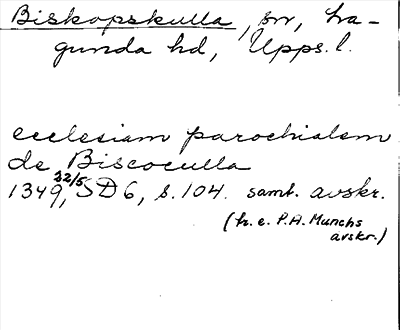 Biskopskulla, sn, Ha-
gunda hd, Upps. l.
ecclesiam parochialem
de Biscoculla
1349 22/5, SD 6, s. 104. samt. avskr.
(h. e. P.A. Munchs
avskr.)